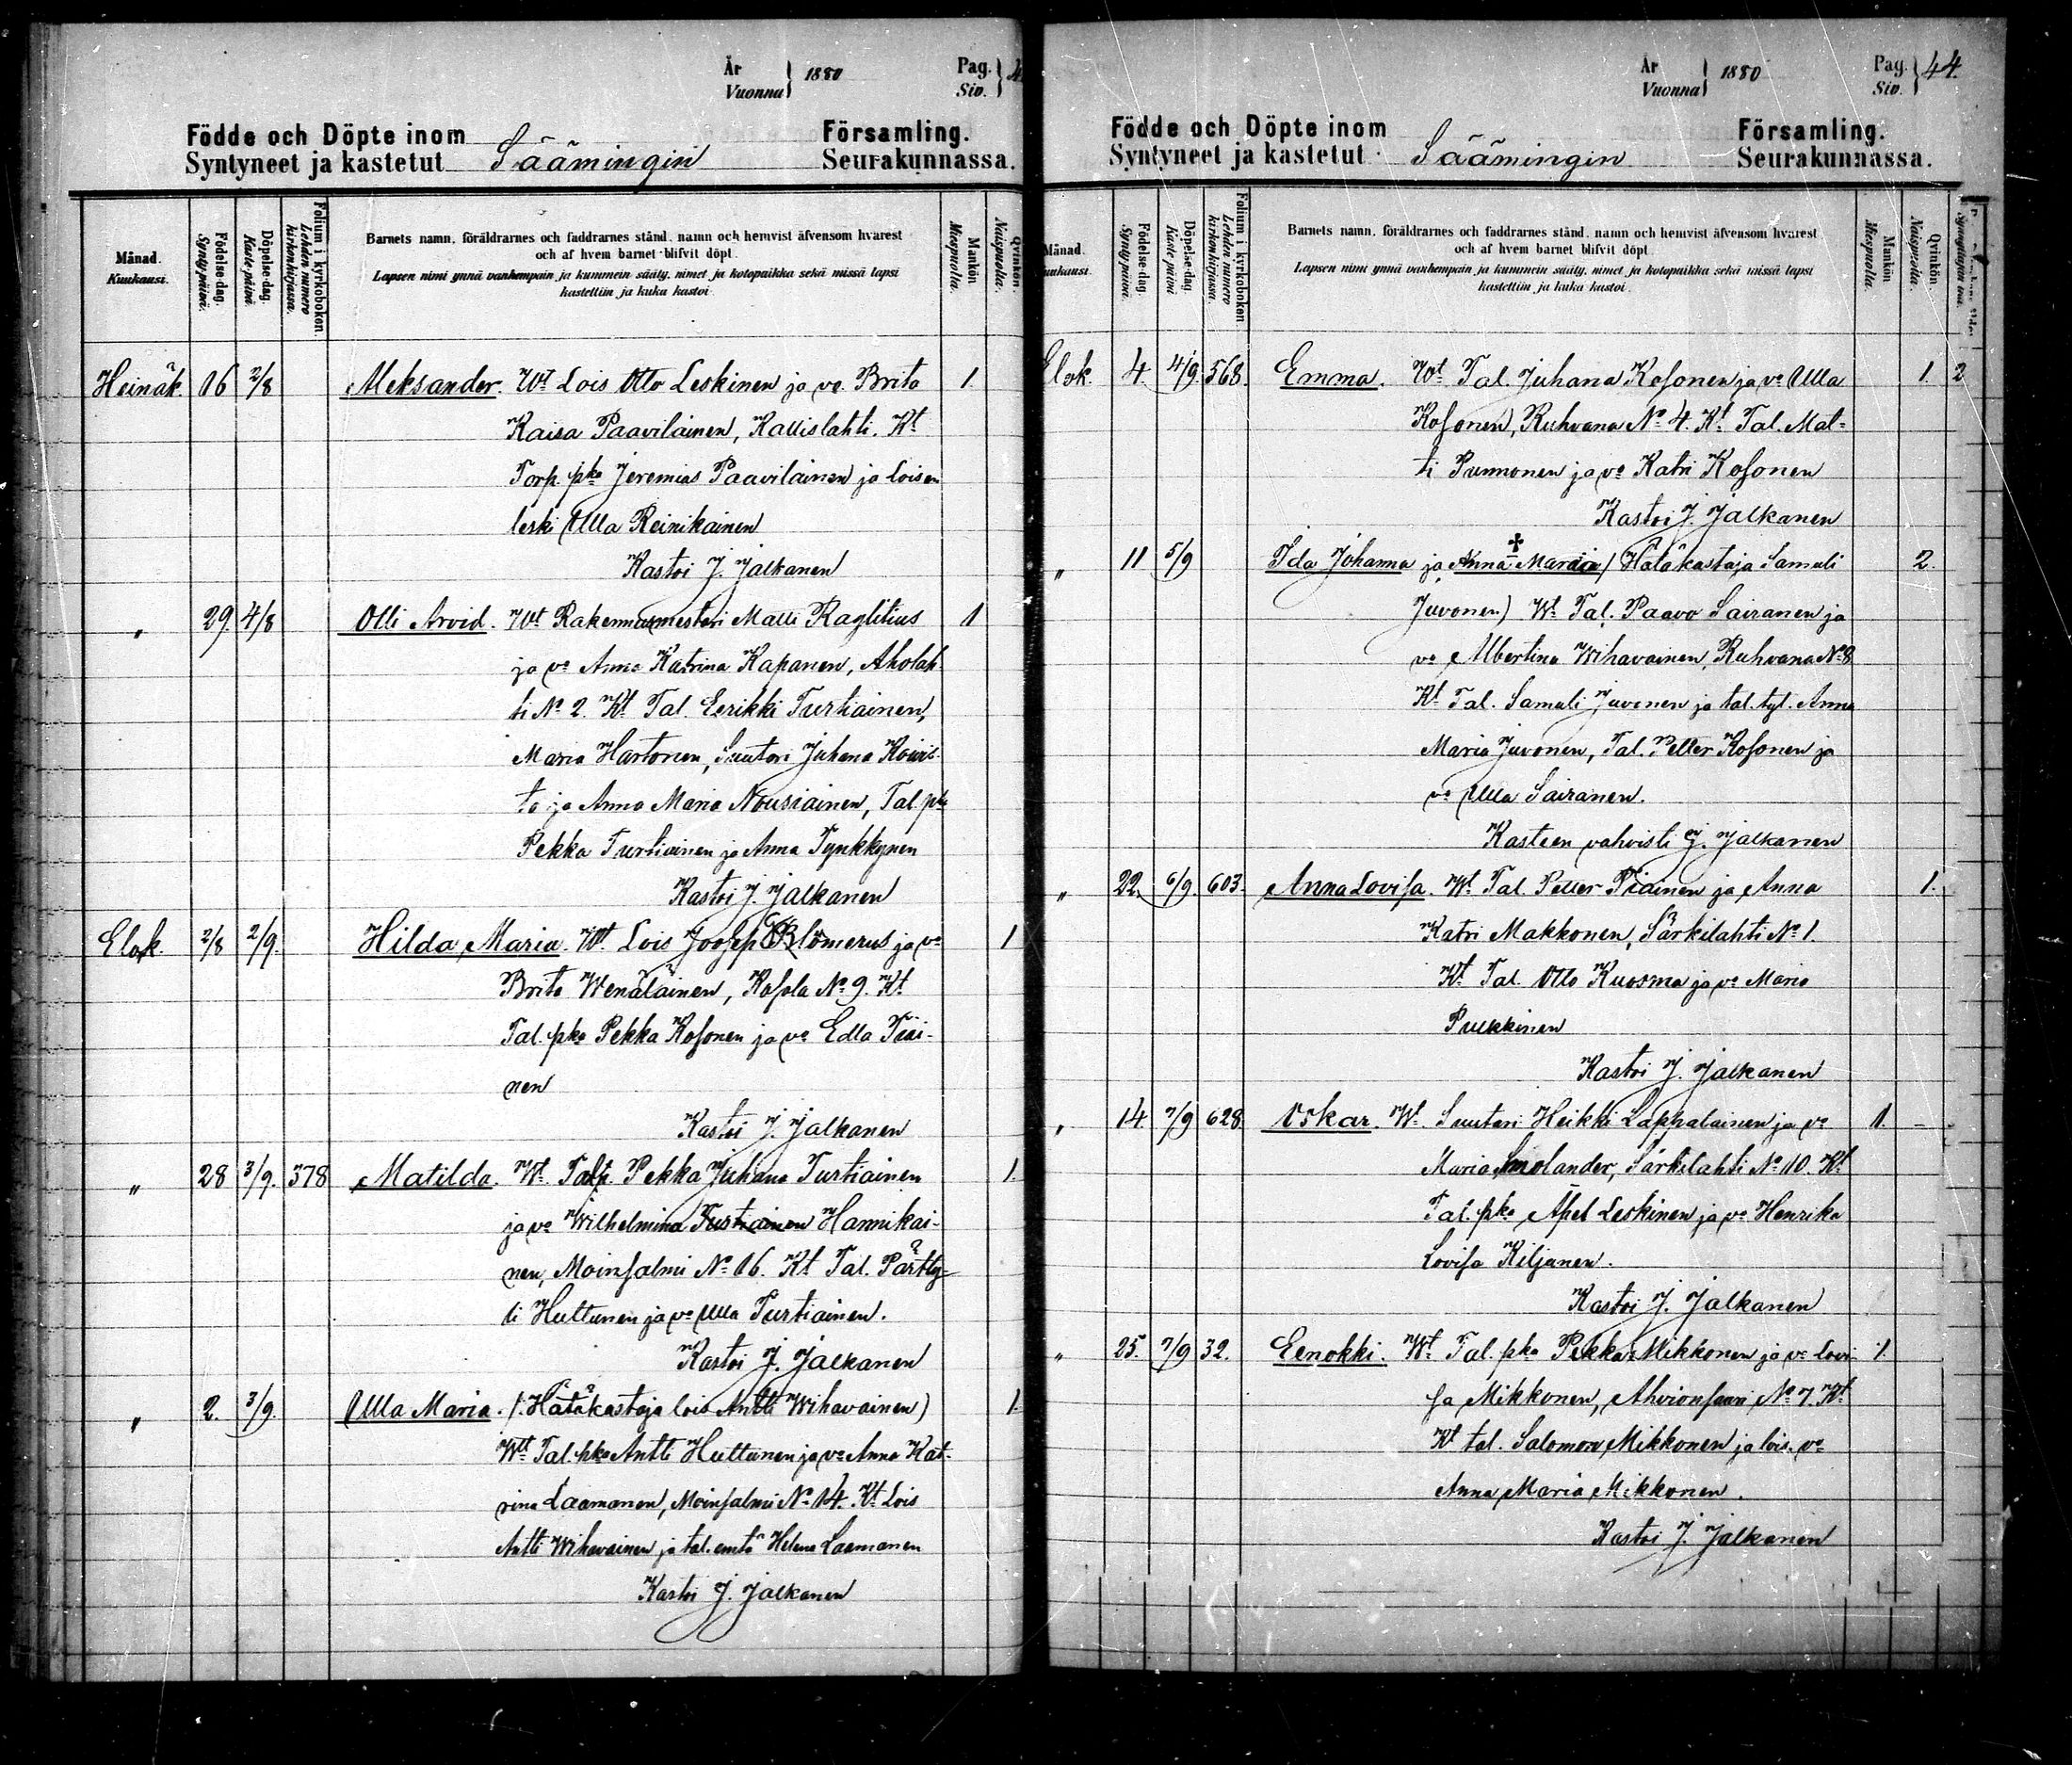 År
Vuonna } 1880
Pag.
Siv. }
Födde och Döpte inom
Syntyneet ja kastetut Säämingin
Församling.
Seurakunnassa.
Månad.
Kuukausi.
Födelse-dag.
Synty-päivä.
Döpelse-dag.
Kaste-päivä.
Folium i kyrkoboken.
Lehden numero
kirkonkirjassa.
Barnets namn, föräldrarnes och faddrarnes stånd, namn och hemvist äfvensom hvarest
och af hvem barnet blifvit döpt.
Lapsen nimi ynnä vanhempain ja kummein sääty, nimet ja kotopaikka sekä missä lapsi
kastettiin ja kuka kastoi.
Mankön
Miespuolia.
Qvinkön.
Naispuolia.
Heinäk. 16 2/8 Aleksander. Wt Lois Otto Leskinen ja vo. Brita 1
Kaisa Paavilainen, Kallislahti. Kt
Torp. pka Jeremias Paavilainen ja loisen
leski Ulla Reinikainen
Kastoi J. Jalkanen
" 29. 4/8 Olli Arvid. Wt Rakennusmestari Matti Raglitius 1
ja vo Anna Katrina Kapanen, Aholah-
ti No 2. Kt Tal. Eerikki Turtiainen,
Maria Hartonen, Suutari Juhana Koivis-
to ja Anna Maria Nousiainen, Tal. pka
Pekka Turtiainen ja Anna Tynkkynen
Kastoi J. Jalkanen
Elok. 2/8 2/9. Hilda Maria. Wt. Lois Josep Blomerus ja vo 1
Brita Wenäläinen, Kosola No 9. Kt
Tal. pka Pekka Kosonen ja vo Edla Tiai-
nen
Kastoi J. Jalkanen
" 28 3/9. 378 Matilda. Wt. Talp. Pekka Juhana Turtiainen 1.
ja vo Wilhelmina Turtiainen Hannikai-
nen, Moinsalmi No 16. Kt Tal. Pärtty-
li Huttunen ja vo Ulla Turtiainen.
Kastoi J. Jalkanen
" 2. 3/9. Ulla Maria. (: Hätäkastaja lois Antti Wihavainen) 1.
Wt Tal. pka Antti Huttunen ja vo Anna Kat-
rina Laamanen, Moinsalmi No 14. Kt Lois
Antti Wihavainen ja tal. emtä Helena Laamanen
Kastoi J. Jalkanen
År
Vuonna } 1880
Pag.
Siv. } 44.
Födde och Döpte inom
Syntyneet ja kastetut Säämingin
Församling.
Seurakunnassa.
Månad.
Kuukausi.
Födelse-dag.
Synty-päivä.
Döpelse-dag.
Kaste-päivä
Folium i kyrkoboken
Lehden numero
kirkonkirjassa.
Barnets namn, föräldrarnes och faddrarnes stånd, namn och hemvist äfvensom hvarest
och af hvem barnet blifvit döpt.
Lapsen nimi ynnä vanhempain ja kummein sääty, nimet ja kotopaikka sekä missä lapsi
kastettiin ja kuka kastoi.
Mankön
Miespuolia.
Qvinkön
Naispuolia.
Elok. 4. 4/9. 568. Emma. Wt Tal. Juhana Kosonen ja vo Ulla 1. 2
Kosonen, Ruhvana No 4. Kt Tal. Mat-
ti Punnonen ja vo Katri Kosonen
Kastoi J. Jalkanen
" 11 5/9 Ida Johanna ja Anna Maria (Hätäkastaja Samuli 2.
Juvonen) Wt Tal. Paavo Sairanen ja
vo Albertina Wihavainen, Ruhvana No 8
Kt Tal. Samuli Juvonen ja tal. tyt. Anna
Maria Juvonen, Tal. Petter Kosonen ja
vo Ulla Sairanen.
Kasteen vahvisti J. Jalkanen
" 22. 6/9. 603. Anna Lovisa. Wt Tal. Petter Tiainen ja Anna 1.
Katri Makkonen, Särkilahti No 1.
Kt Tal. Otto Kuosma ja vo Maria
Pulkkinen
Kastoi J. Jalkanen
" 14. 7/9 628. Oskar. Wt Suutari Heikki Lappalainen ja vo 1.
Maria Smolander, Särkilahti No 10. Kt
Tal. pka Apel Leskinen ja vo Henrika
Lovisa Kiljunen.
Kastoi J. Jalkanen
" 25. 7/9 32. Eenokki. Wt Tal. pka Pekka Mikkonen ja vo Lovi- 1.
sa Mikkonen, Ahvionsaari No 7. Kt
Kt tal. Salomon Mikkonen ja lois. vo
Anna Maria Mikkonen.
Kastoi J. Jalkanen